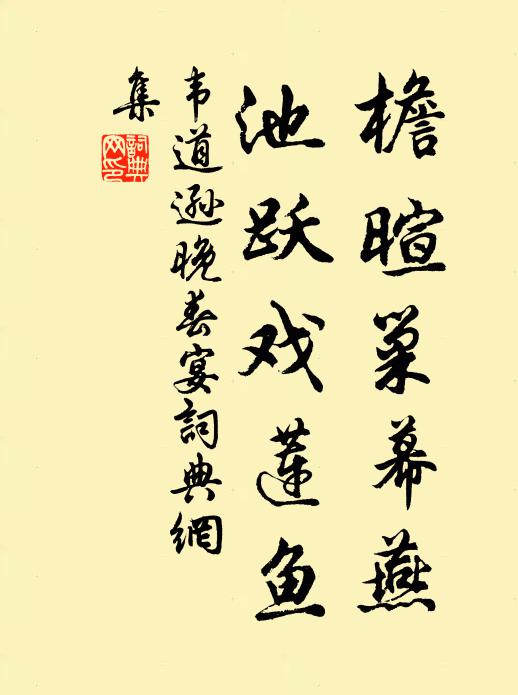 檐暄巢幕燕
池跃戏莲鱼
韦道逊晚春宴詞典網
集
詞典
网印